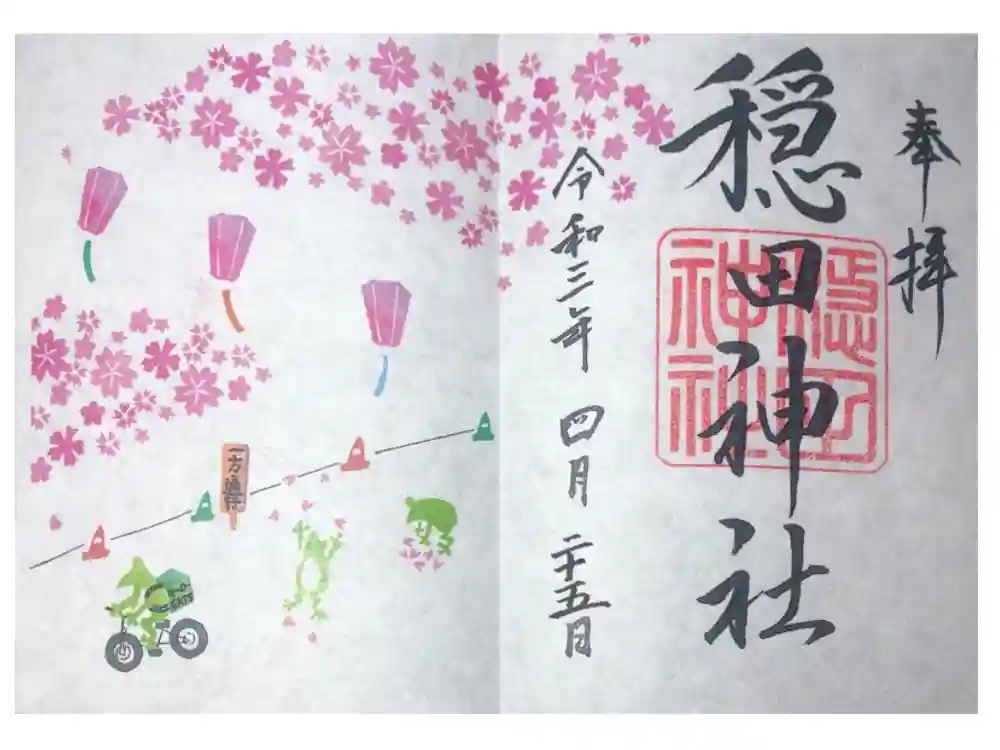 奉拝
穏田神社
穏田
神社
令和三年 四月 二十五日
一方通行
EATS